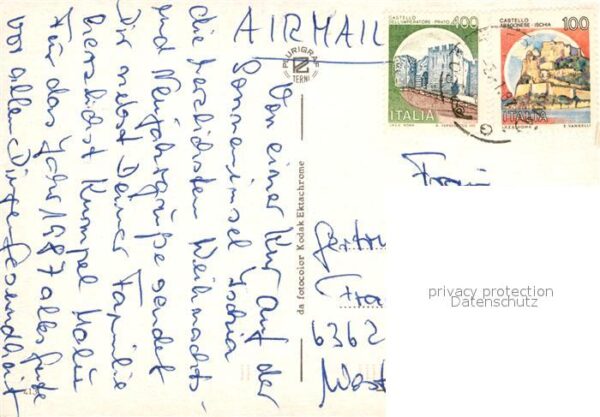 AIRMAIL
Von einer Kur auf der
Sonneninsel Ischia
die herzlichsten Weihnachts-
und Neujahrsgrüße sendet
Dir nebst Deiner Familie
herzlichst
Für das Jahr 1987 alles Gute
vor allen Dingen Gesundheit
PLURIGRAF
TERNI
da fotocolor Kodak Ektachrome
CASTELLO
DELL'IMPERATORE · PRATO
400
ITALIA
CASTELLO
ARAGONESE · ISCHIA
100
ITALIA
E. VANGELLI
Frau
Gertru
6362
West
privacy protection
Datenschutz